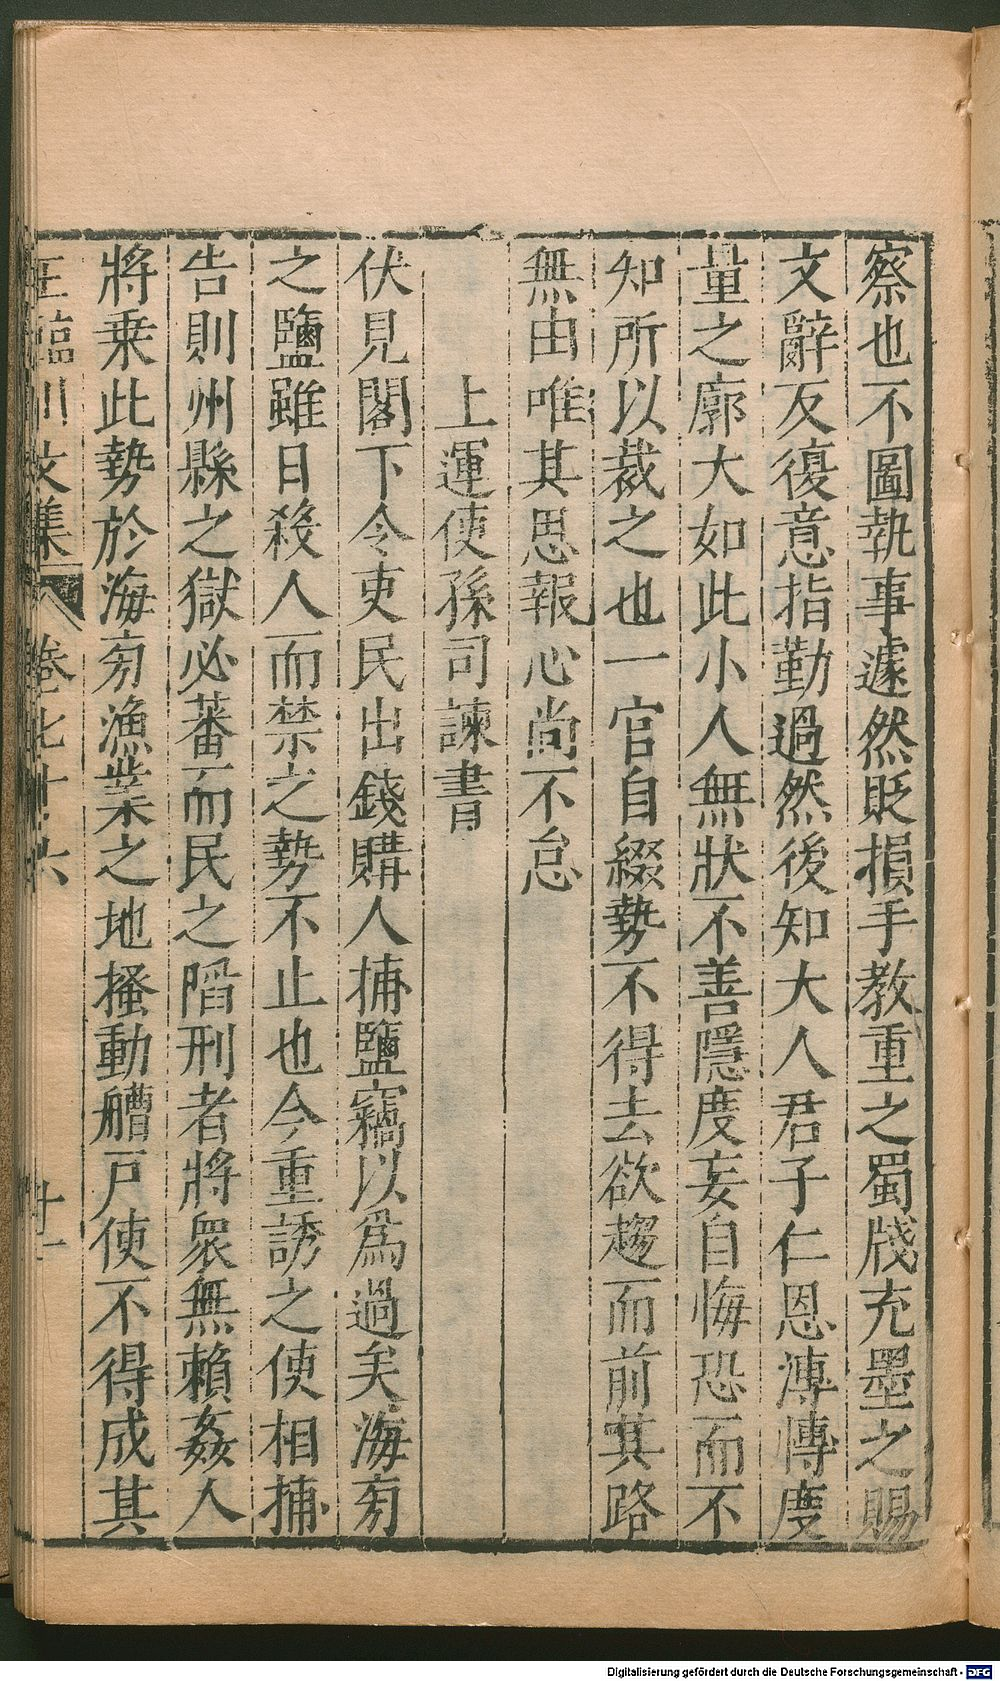 察也不圖執事遽然貶損手教重之蜀牋充墨之賜
文辭反復意指勤過然後知大人君子仁恩溥博度
量之廓大如此小人無狀不善隱度妄自悔恐而不
知所以裁之也一官自綴勢不得去欲趨而前其路
無由唯其思報心尚不怠
上運使孫司諫書
伏見閣下令吏民出錢購人捕鹽竊以為過矣海旁
之鹽雖日殺人而禁之勢不止也今重誘之使相捕
告則州縣之獄必蕃而民之陷刑者將衆無賴姦人
將乗此勢於海旁漁業之地搔動艚戸使不得成其
王臨川文集
卷七十六
十一
Digitalisierung gefördert durch die Deutsche Forschungsgemeinschaft - DFG